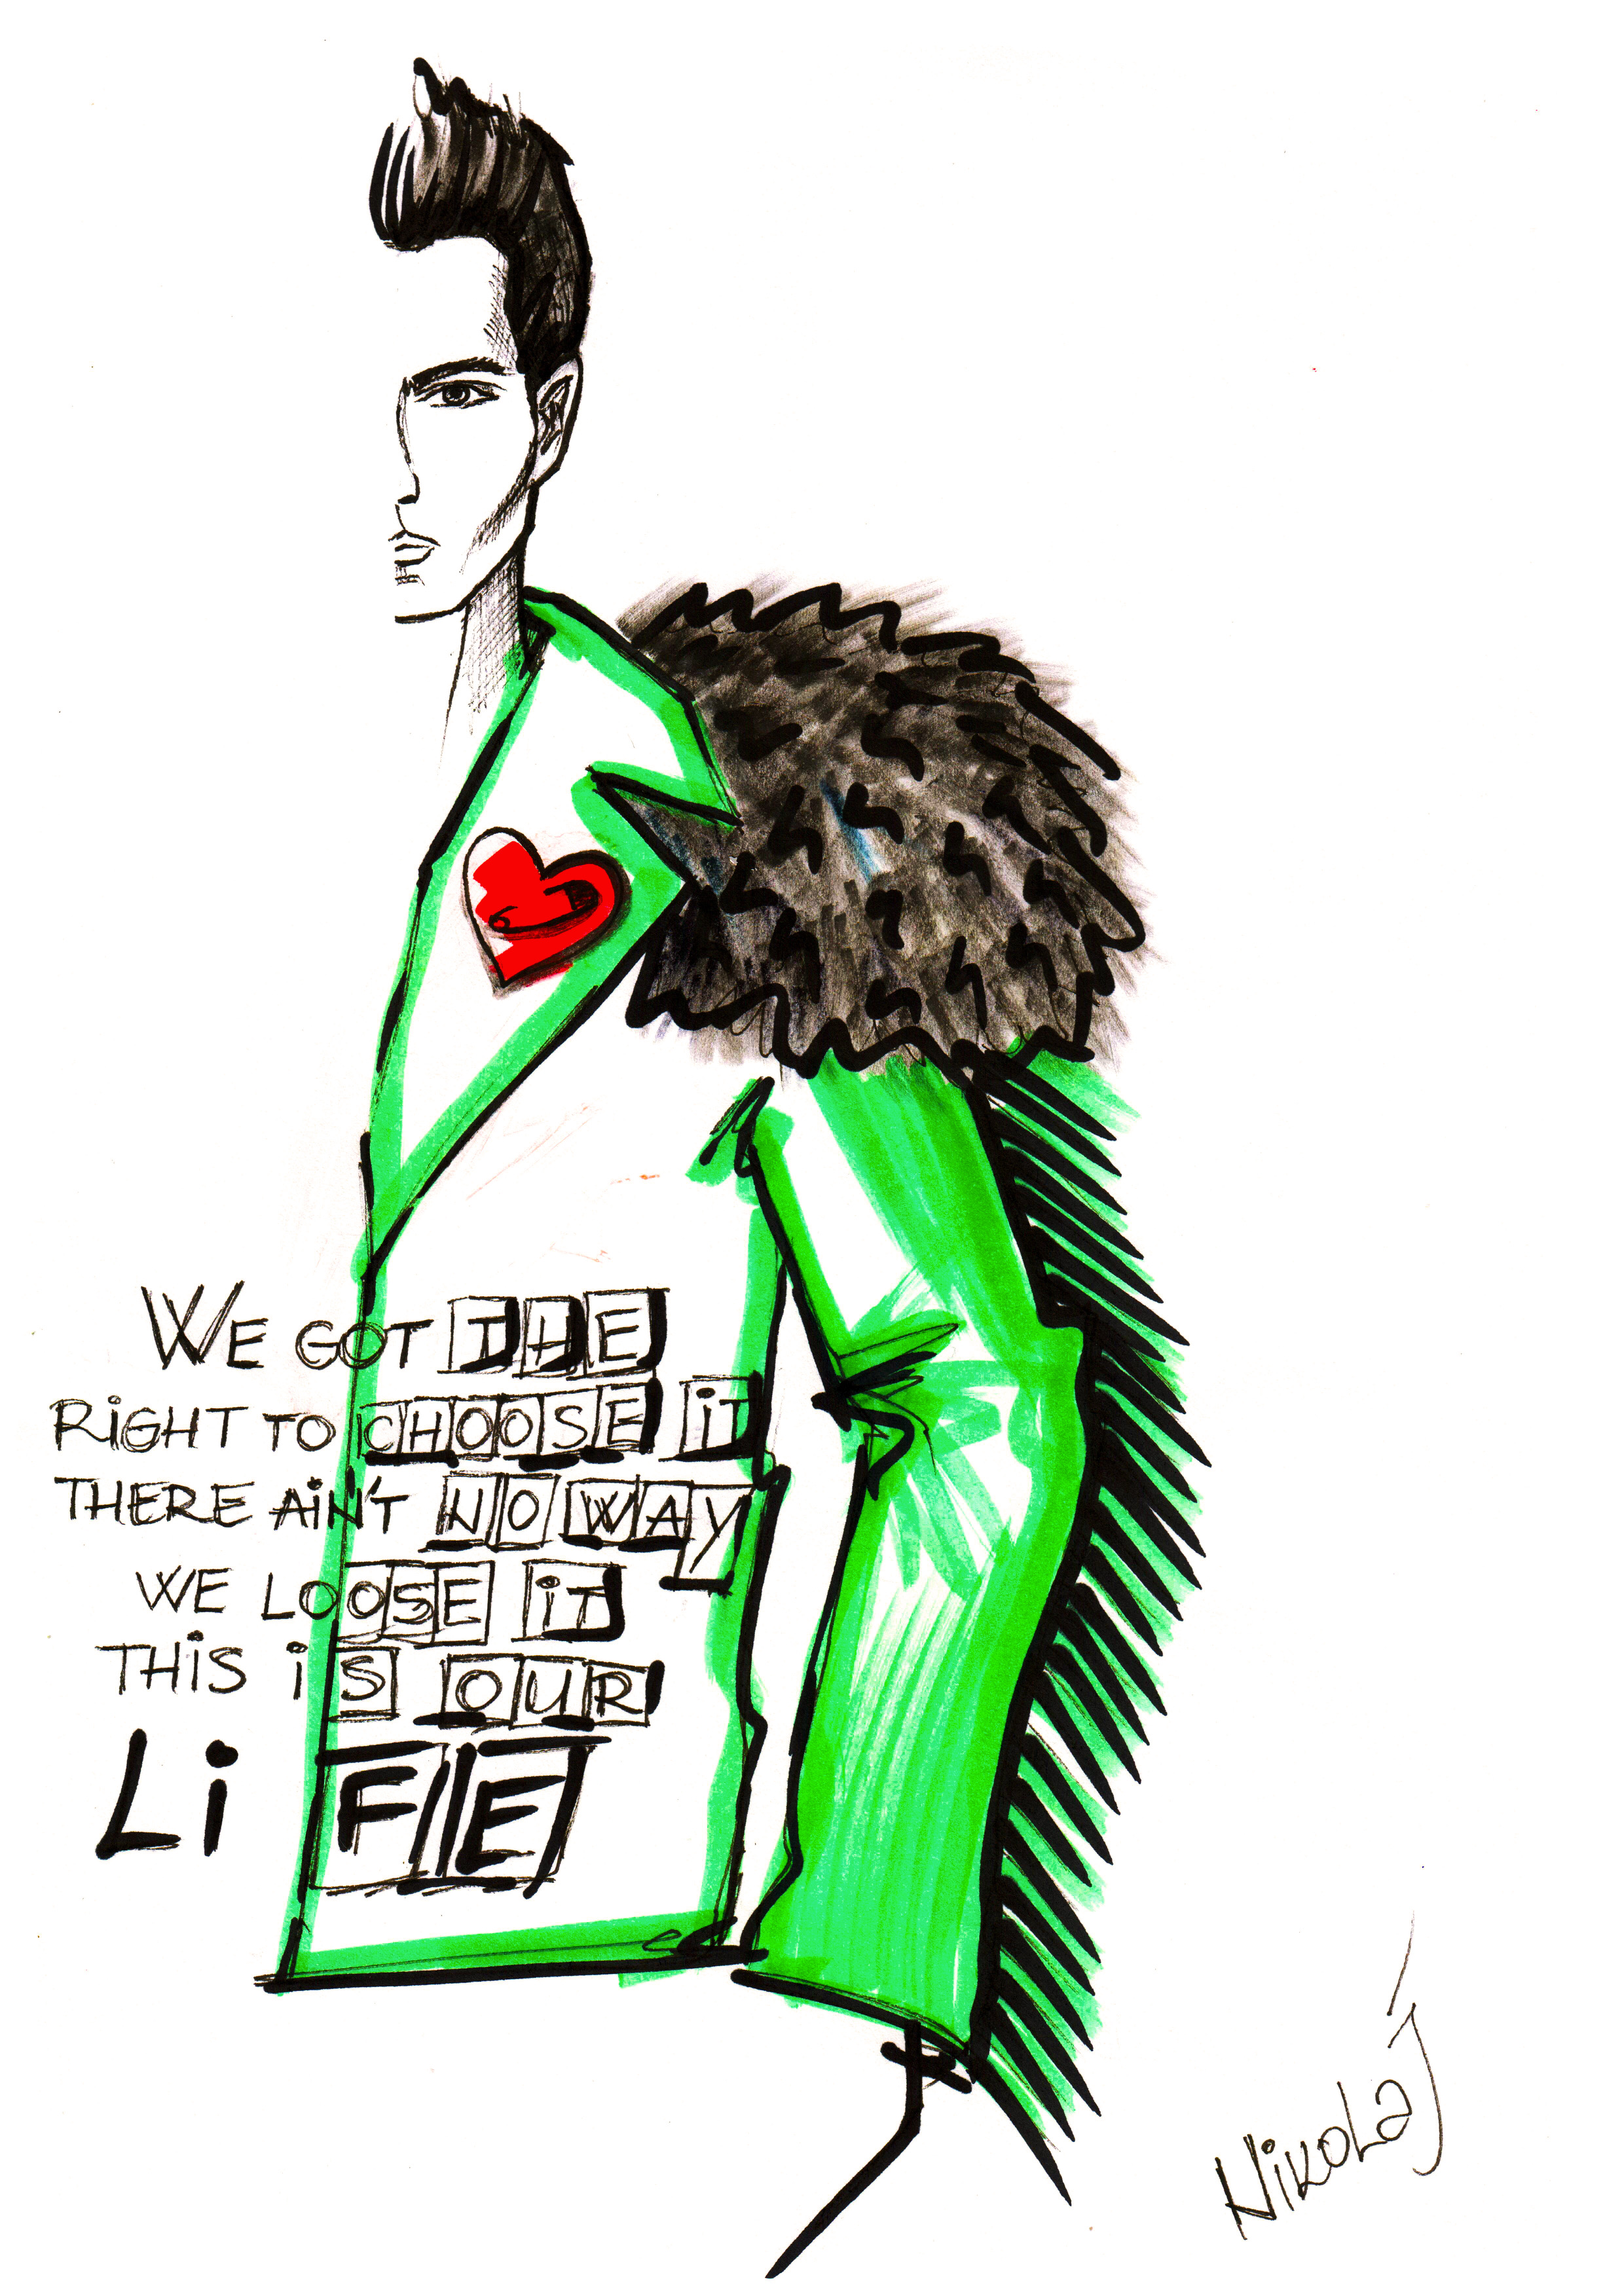 WE GOT THE
RiGHT TO CHOOSE iT
THERE AiN'T NO WAY
WE LOOSE iT
THiS iS OUR
LiFE
NikoLaj